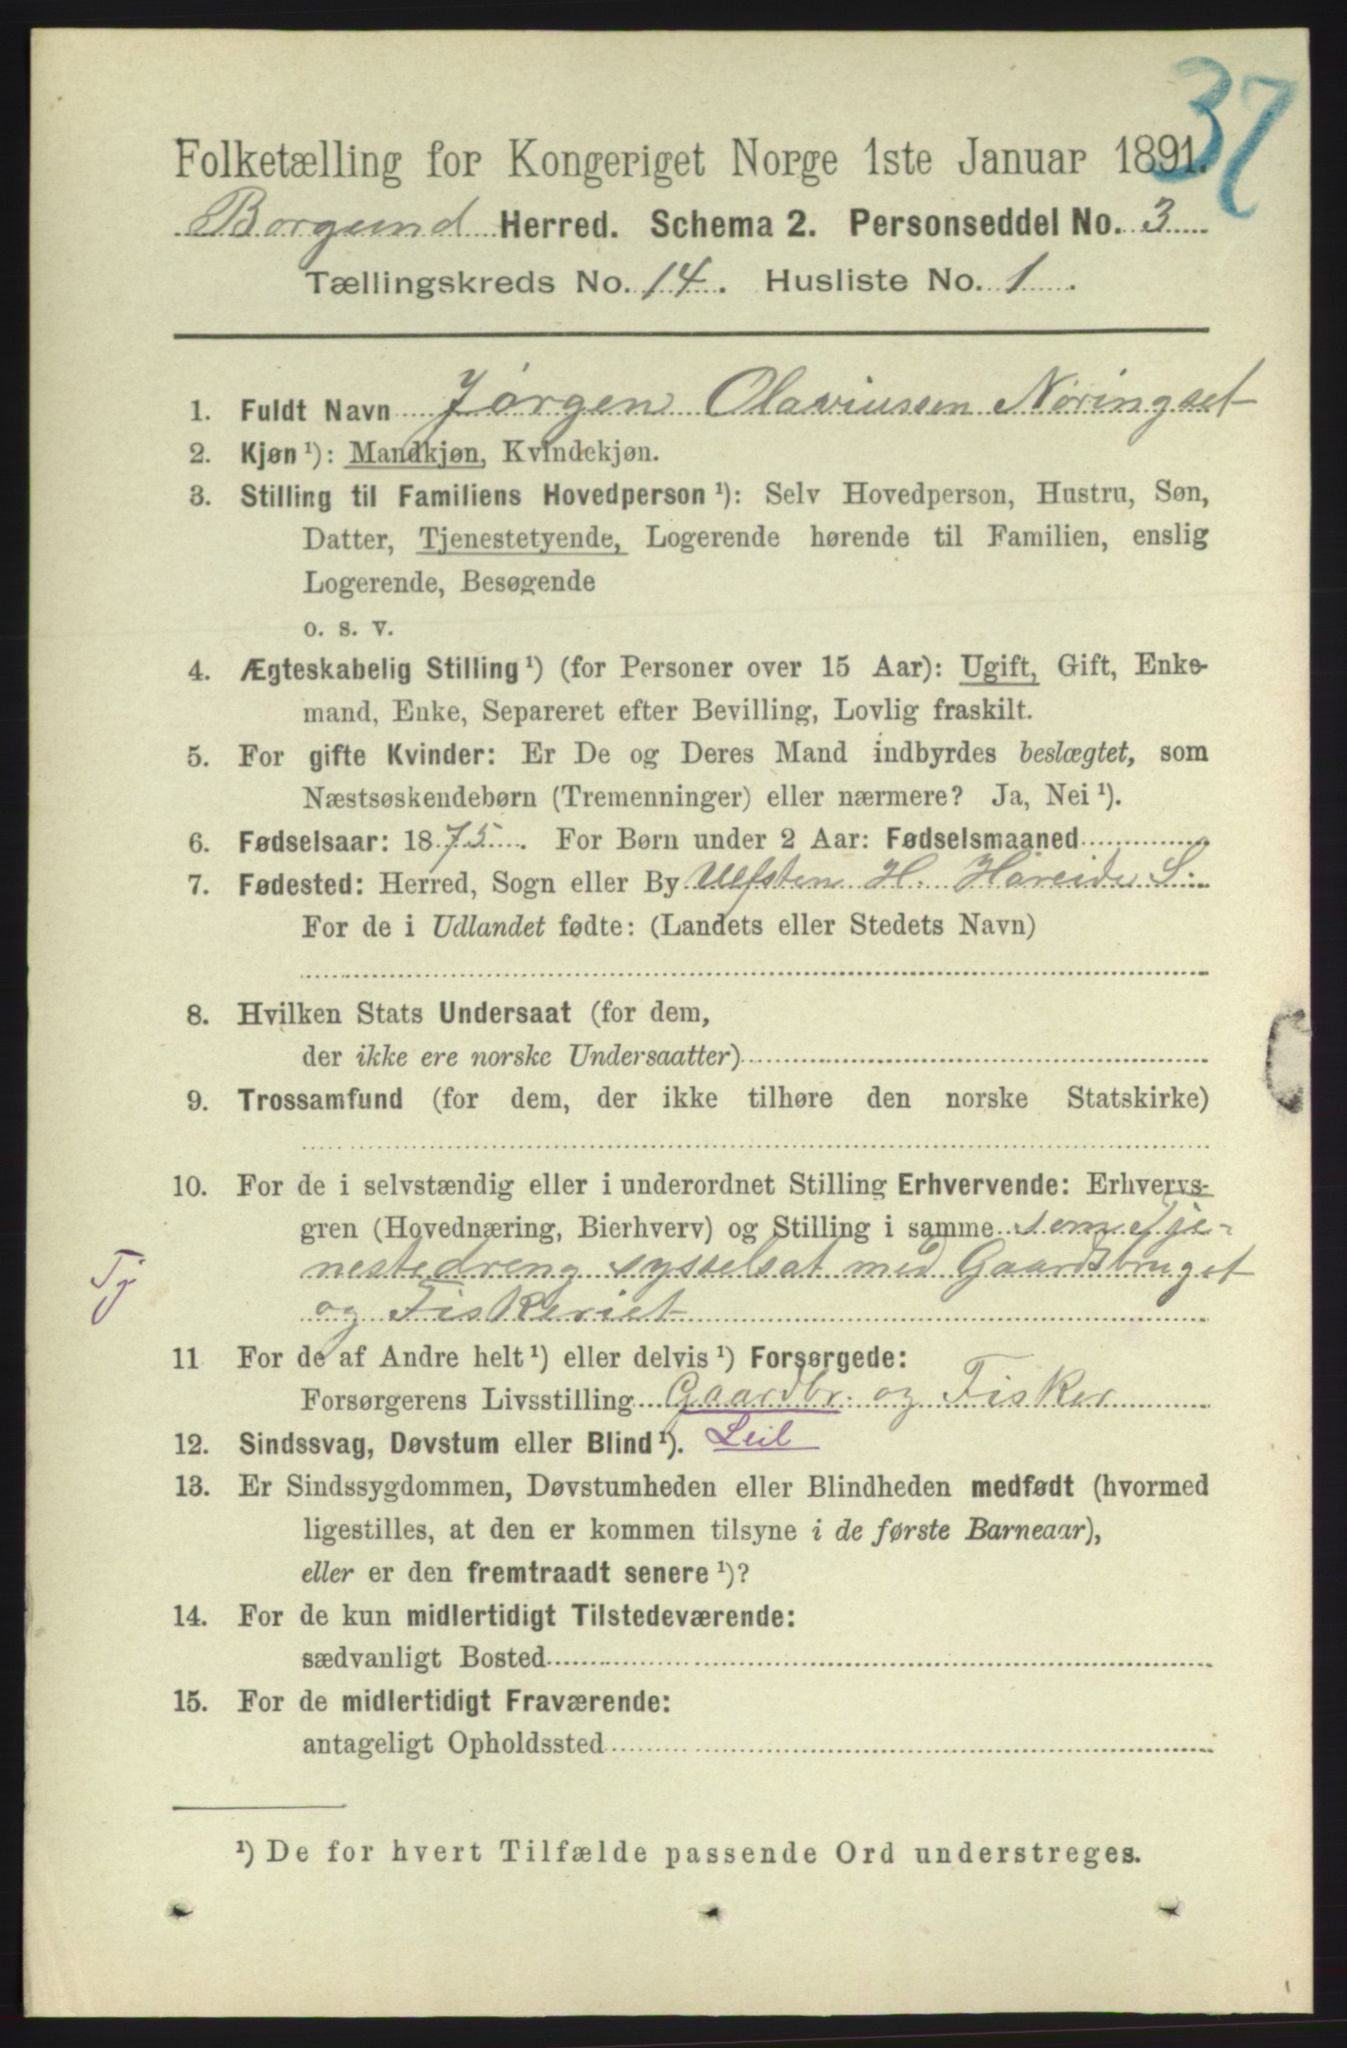 37
Folketælling for Kongeriget Norge 1ste Januar 1891.
Borgund Herred. Schema 2. Personseddel No. 3
Tællingskreds No. 14. Husliste No. 1.
1. Fuldt Navn Jørgen Olaviussen Nøringset
2. Kjøn ¹): Mandkjøn, Kvindekjøn.
3. Stilling til Familiens Hovedperson ¹): Selv Hovedperson, Hustru, Søn,
Datter, Tjenestetyende, Logerende hørende til Familien, enslig
Logerende, Besøgende
o. s. v.
4. Ægteskabelig Stilling ¹) (for Personer over 15 Aar): Ugift, Gift, Enke-
mand, Enke, Separeret efter Bevilling, Lovlig fraskilt.
5. For gifte Kvinder: Er De og Deres Mand indbyrdes beslægtet, som
Næstsøskendebørn (Tremenninger) eller nærmere? Ja, Nei ¹).
6. Fødselsaar: 1875. For Børn under 2 Aar: Fødselsmaaned
7. Fødested: Herred, Sogn eller By Ulfsten H. Hareide S.
For de i Udlandet fødte: (Landets eller Stedets Navn)
8. Hvilken Stats Undersaat (for dem,
der ikke ere norske Undersaatter)
9. Trossamfund (for dem, der ikke tilhøre den norske Statskirke)
10. For de i selvstændig eller i underordnet Stilling Erhvervende: Erhvervs-
gren (Hovednæring, Bierhverv) og Stilling i samme som Tje-
nestedreng sysselsat med Gaardsbruget
Tj
og Fiskeriet
11 For de af Andre helt ¹) eller delvis ¹) Forsørgede:
Forsørgerens Livsstilling Gaardbr. og Fisker
12. Sindssvag, Døvstum eller Blind ¹). Leil
13. Er Sindssygdommen, Døvstumheden eller Blindheden medfødt (hvormed
ligestilles, at den er kommen tilsyne i de første Barneaar),
eller er den fremtraadt senere ¹)?
14. For de kun midlertidigt Tilstedeværende:
sædvanligt Bosted
15. For de midlertidigt Fraværende:
antageligt Opholdssted
¹) De for hvert Tilfælde passende Ord understreges.